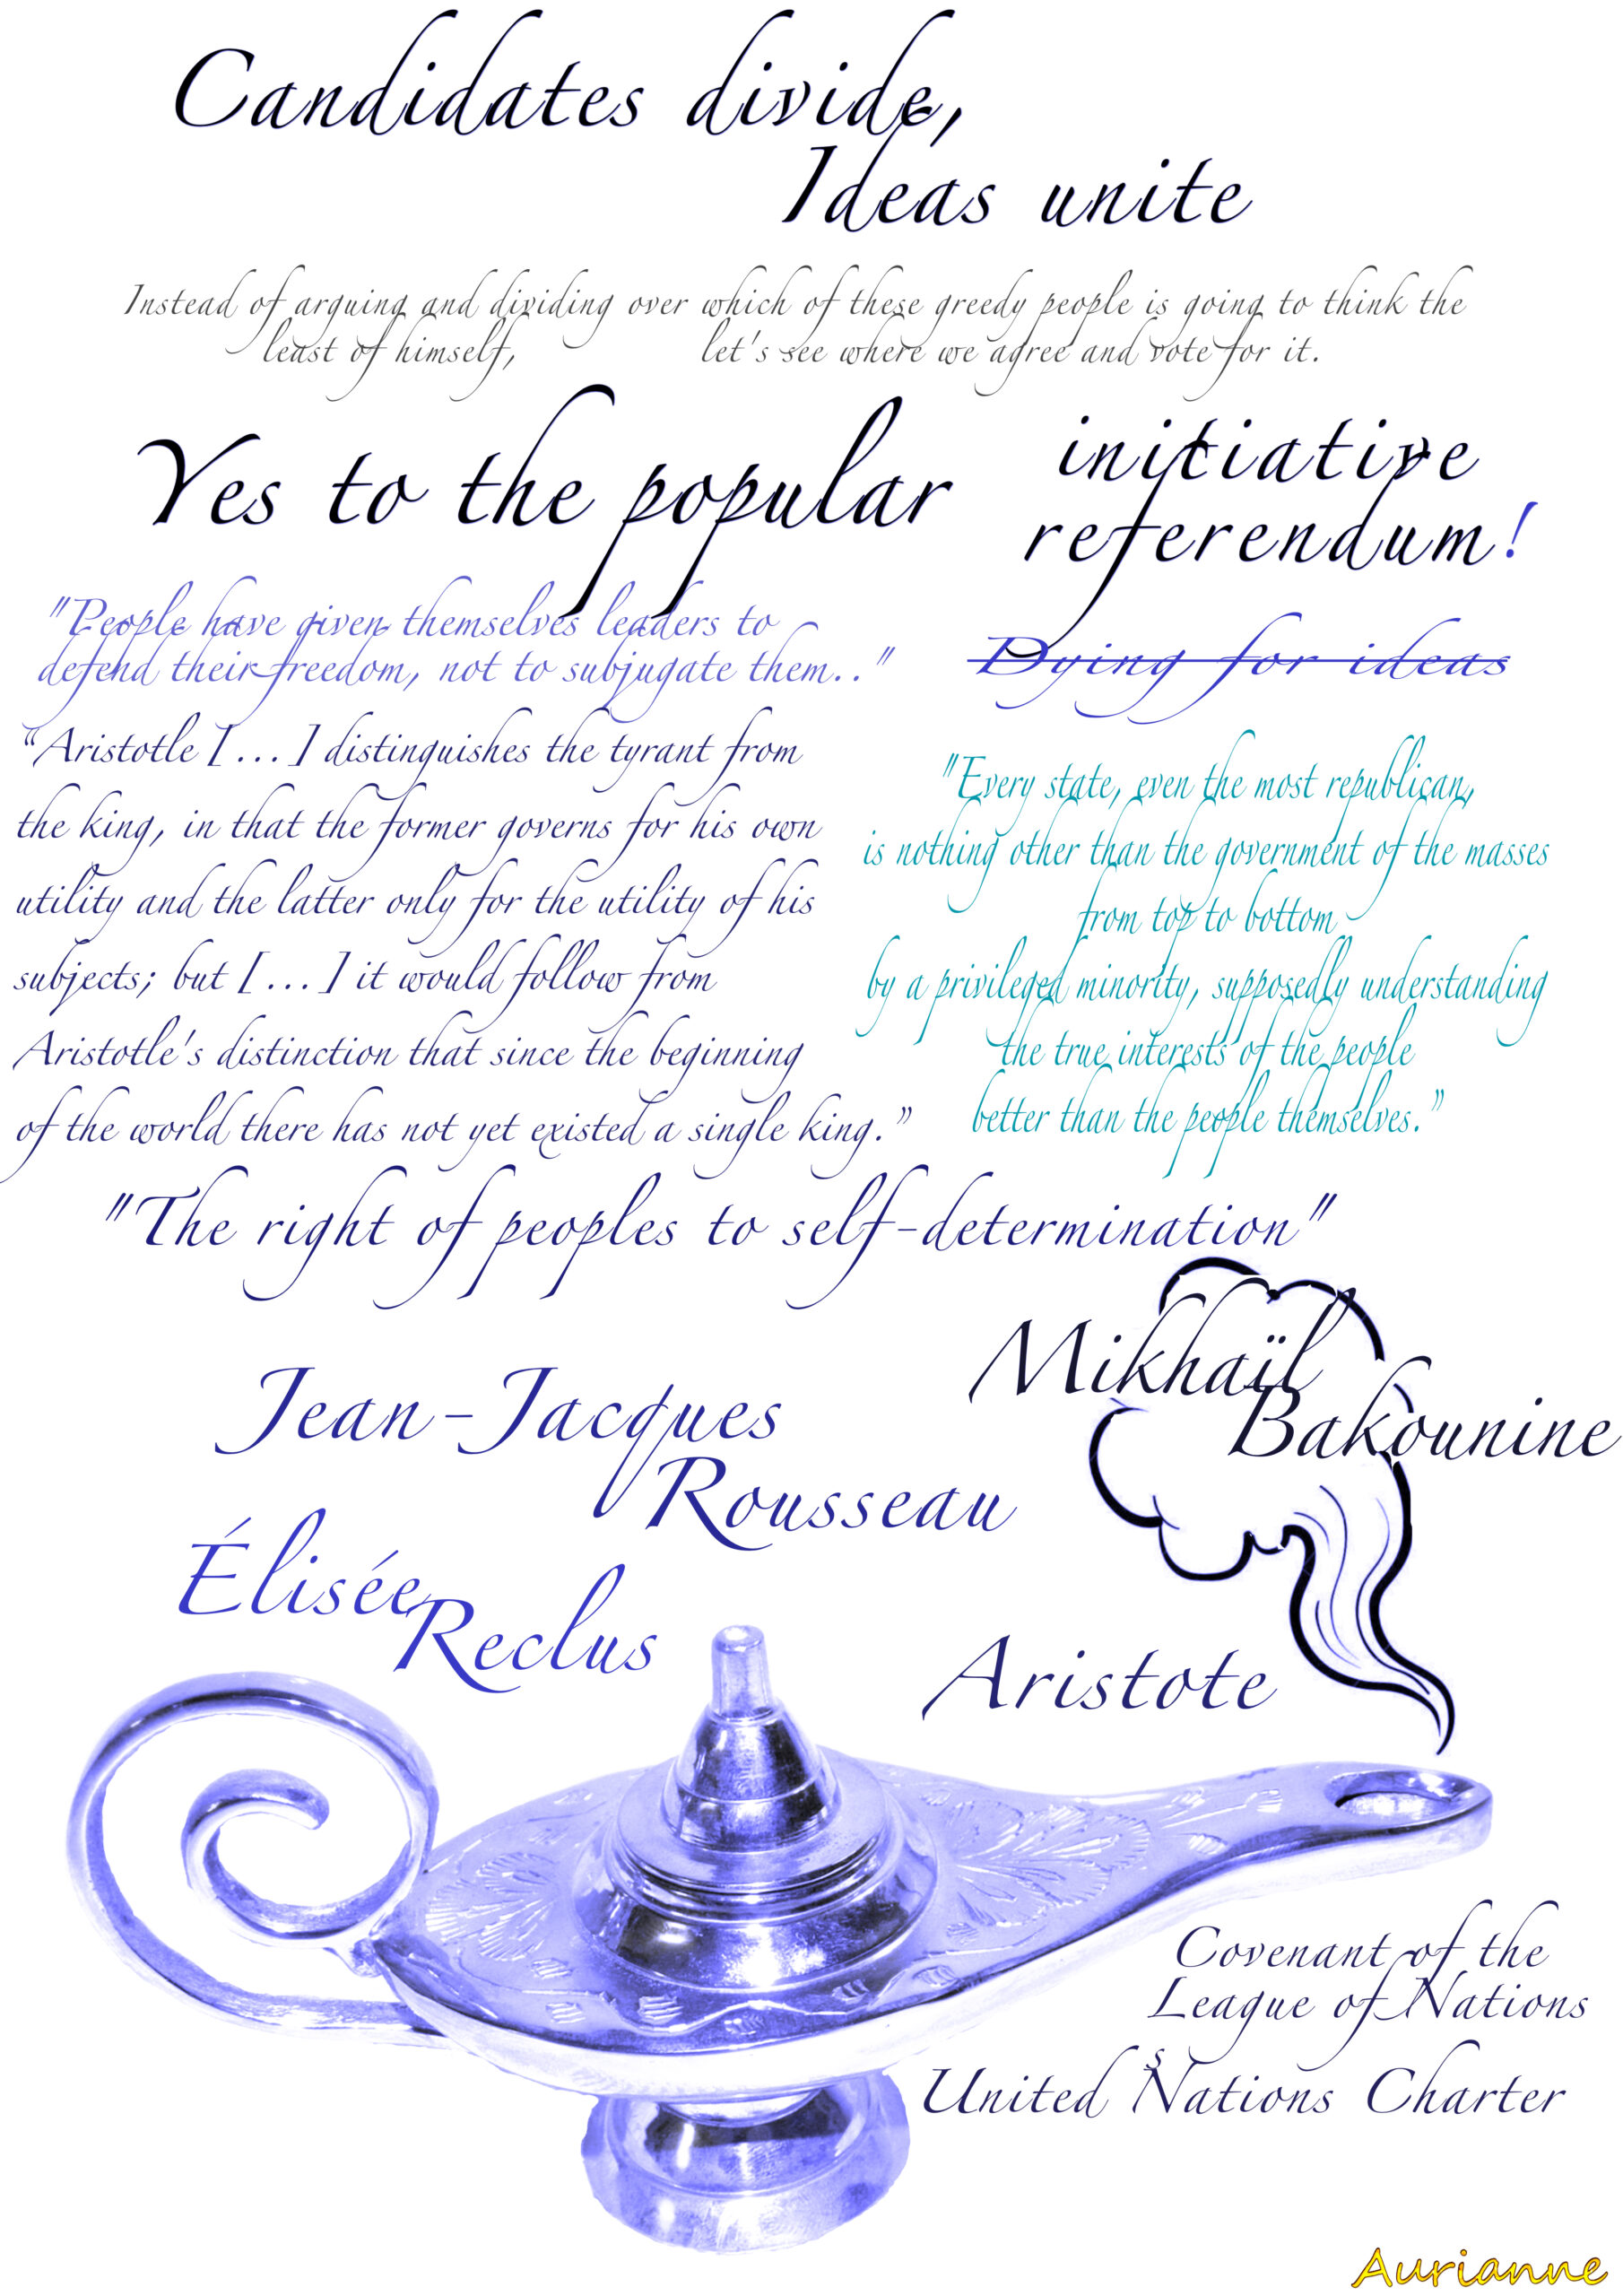 Candidates divide,
Ideas unite
Instead of arguing and dividing over which of these greedy people is going to think the
least of himself, let's see where we agree and vote for it.
Yes to the popular
initiative
referendum!
"People have given themselves leaders to
defend their freedom, not to subjugate them.."
Dying for ideas
“Aristotle [...] distinguishes the tyrant from
the king, in that the former governs for his own
utility and the latter only for the utility of his
subjects; but [...] it would follow from
Aristotle's distinction that since the beginning
of the world there has not yet existed a single king.”
"Every state, even the most republican,
is nothing other than the government of the masses
from top to bottom
by a privileged minority, supposedly understanding
the true interests of the people
better than the people themselves.”
"The right of peoples to self-determination"
Mikhaïl
Bakounine
Jean-Jacques
Rousseau
Élisée
Reclus
Aristote
Covenant of the
League of Nations
s
United Nations Charter
Aurianne